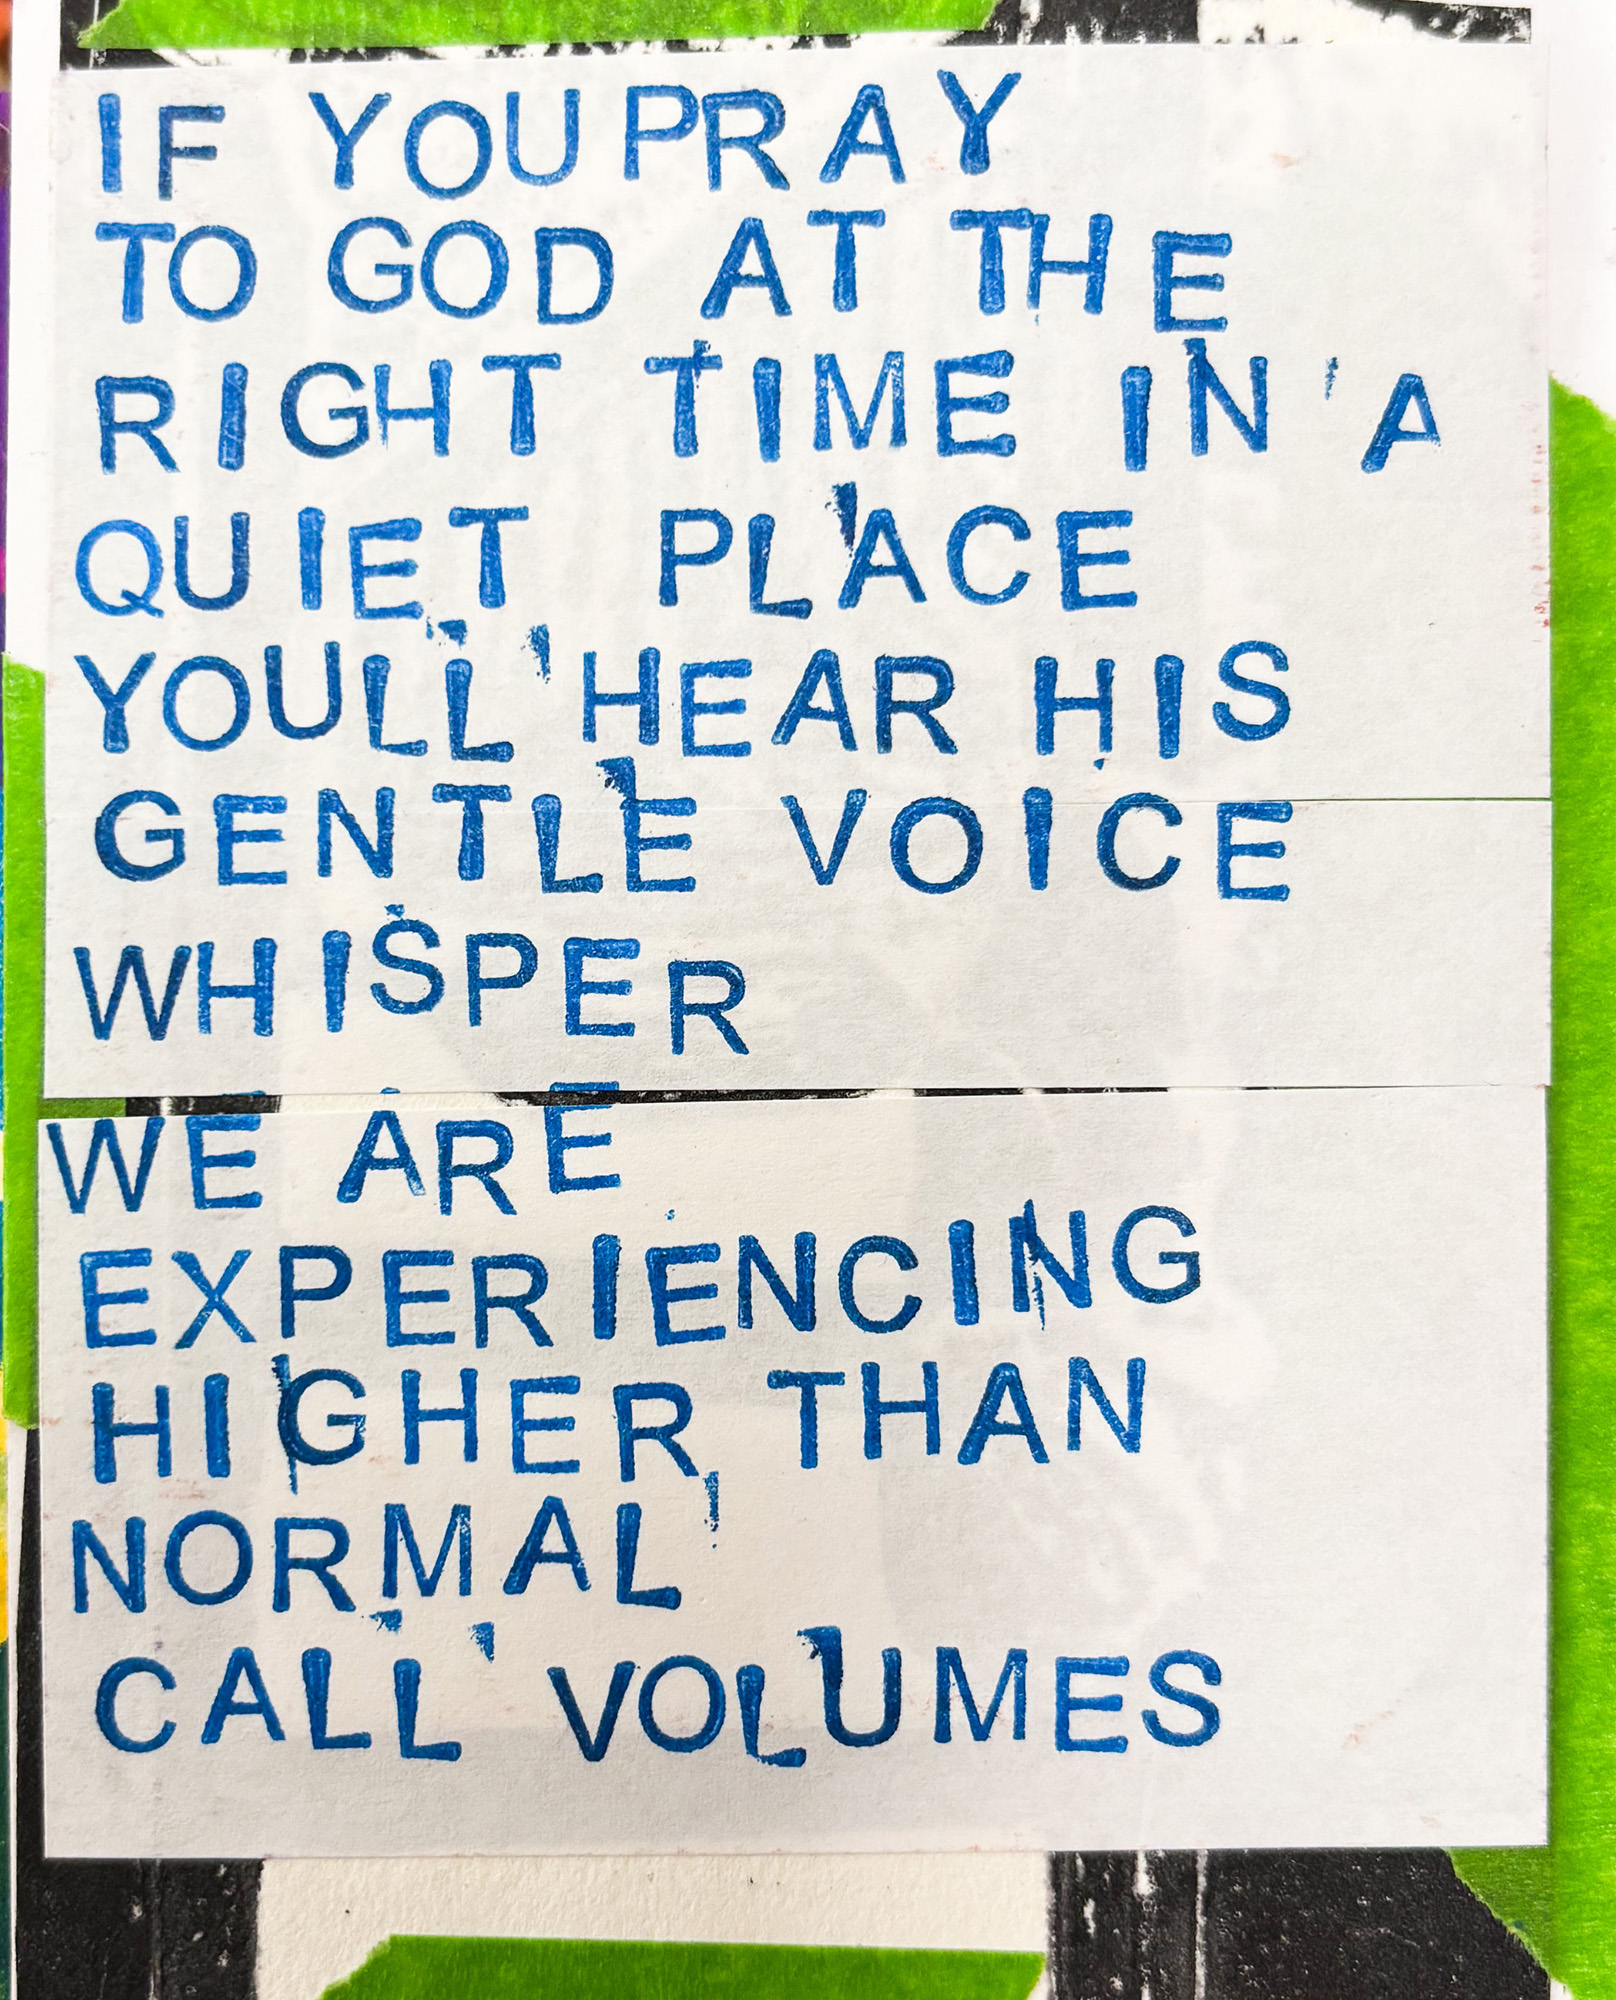 IF YOU PRAY
TO GOD AT THE
RIGHT TIME IN A
QUIET PLACE
YOULL HEAR HIS
GENTLE VOICE
WHISPER
WE ARE
EXPERIENCING
HIGHER THAN
NORMAL
CALL VOLUMES